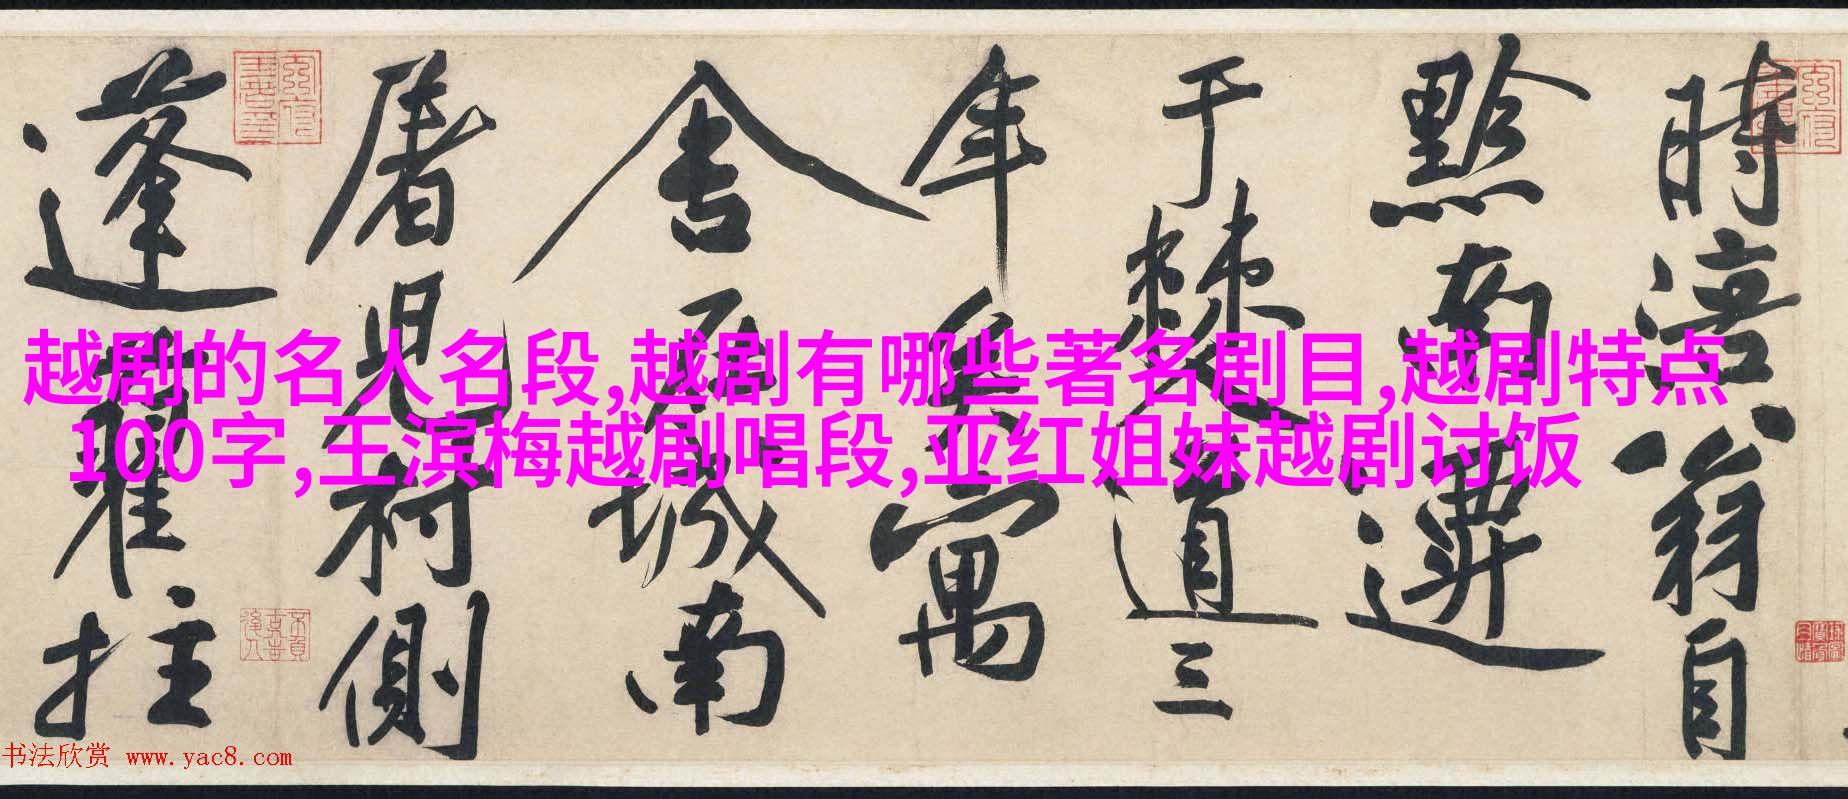 時涪翁自
黔南遷
于棘道三
年矣寓
舍在城南
屠児村側
蓬藋拄
越剧的名人名段,越剧有哪些著名剧目,越剧特点
100字,王滨梅越剧唱段,亚红姐妹越剧讨饭
书法欣赏 www.yac8.com